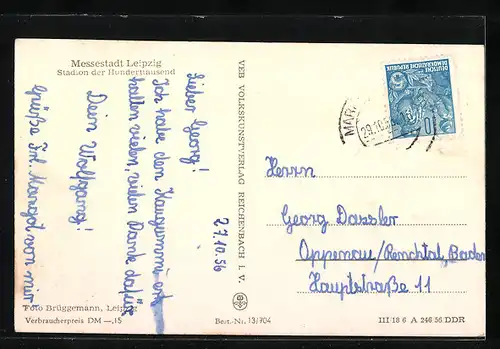 Messestadt Leipzig
Stadion der Hunderttausend
27.10.56
Lieber Georg!
Ich habe den Kaugummi er-
halten vielen, vielen Dank dafür
Dein Wolfgang!
Grüße Frl. Margot von mir
Foto Brüggemann, Leipzig
Verbraucherpreis DM —,15
VEB VOLKSKUNSTVERLAG REICHENBACH I. V.
Best.-Nr. 13/904
DEUTSCHE DEMOKRATISCHE REPUBLIK
10
MAR
29.10.5
Herrn
Georg Dassler
Oppenau/Renchtal, Baden
Hauptstraße 11
III 18 6 A 246 56 DDR